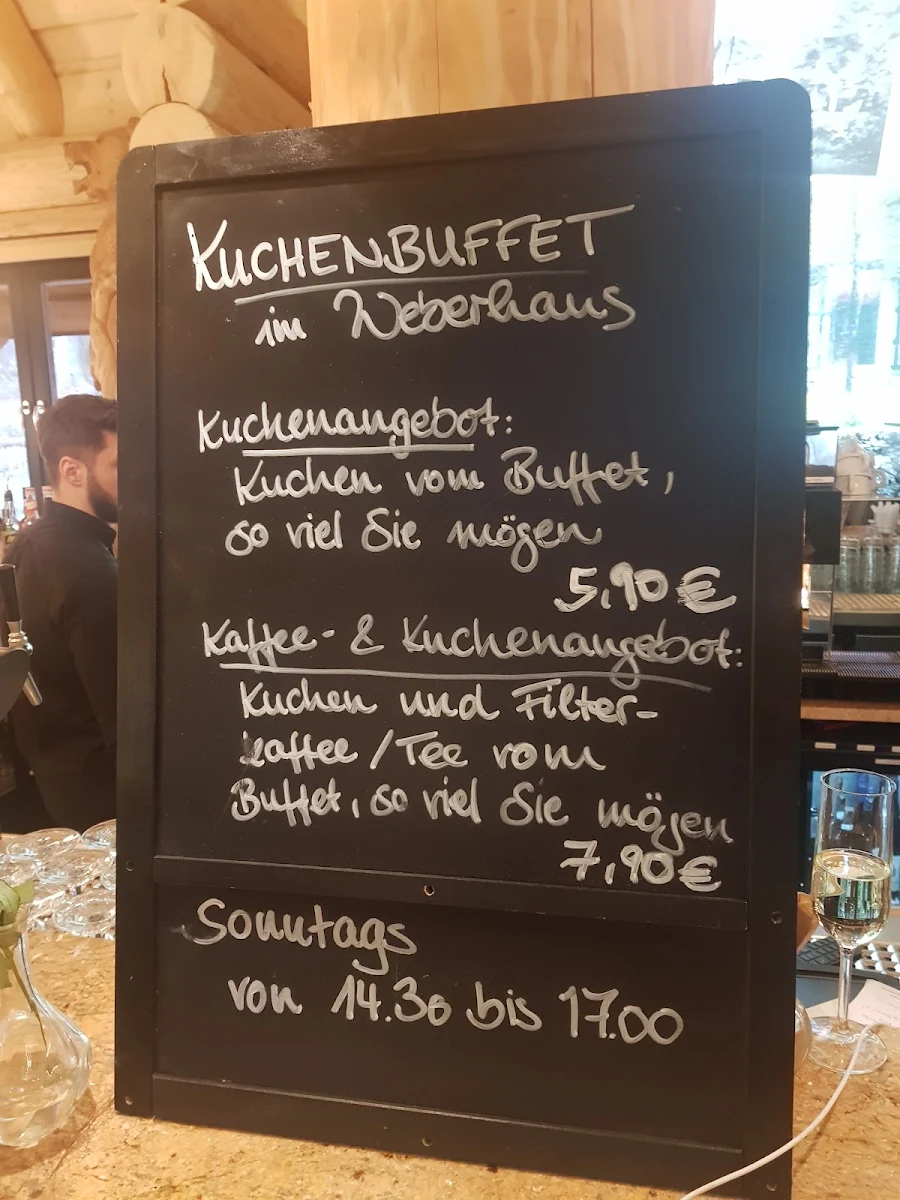 KUCHENBUFFET
im Weberhaus
Kuchenangebot:
Kuchen vom Buffet,
so viel Sie mögen
5,90 €
Kaffee- & Kuchenangebot:
Kuchen und Filter-
kaffee / Tee vom
Buffet, so viel Sie mögen
7,90 €
Sonntags
von 14.30 bis 17.00